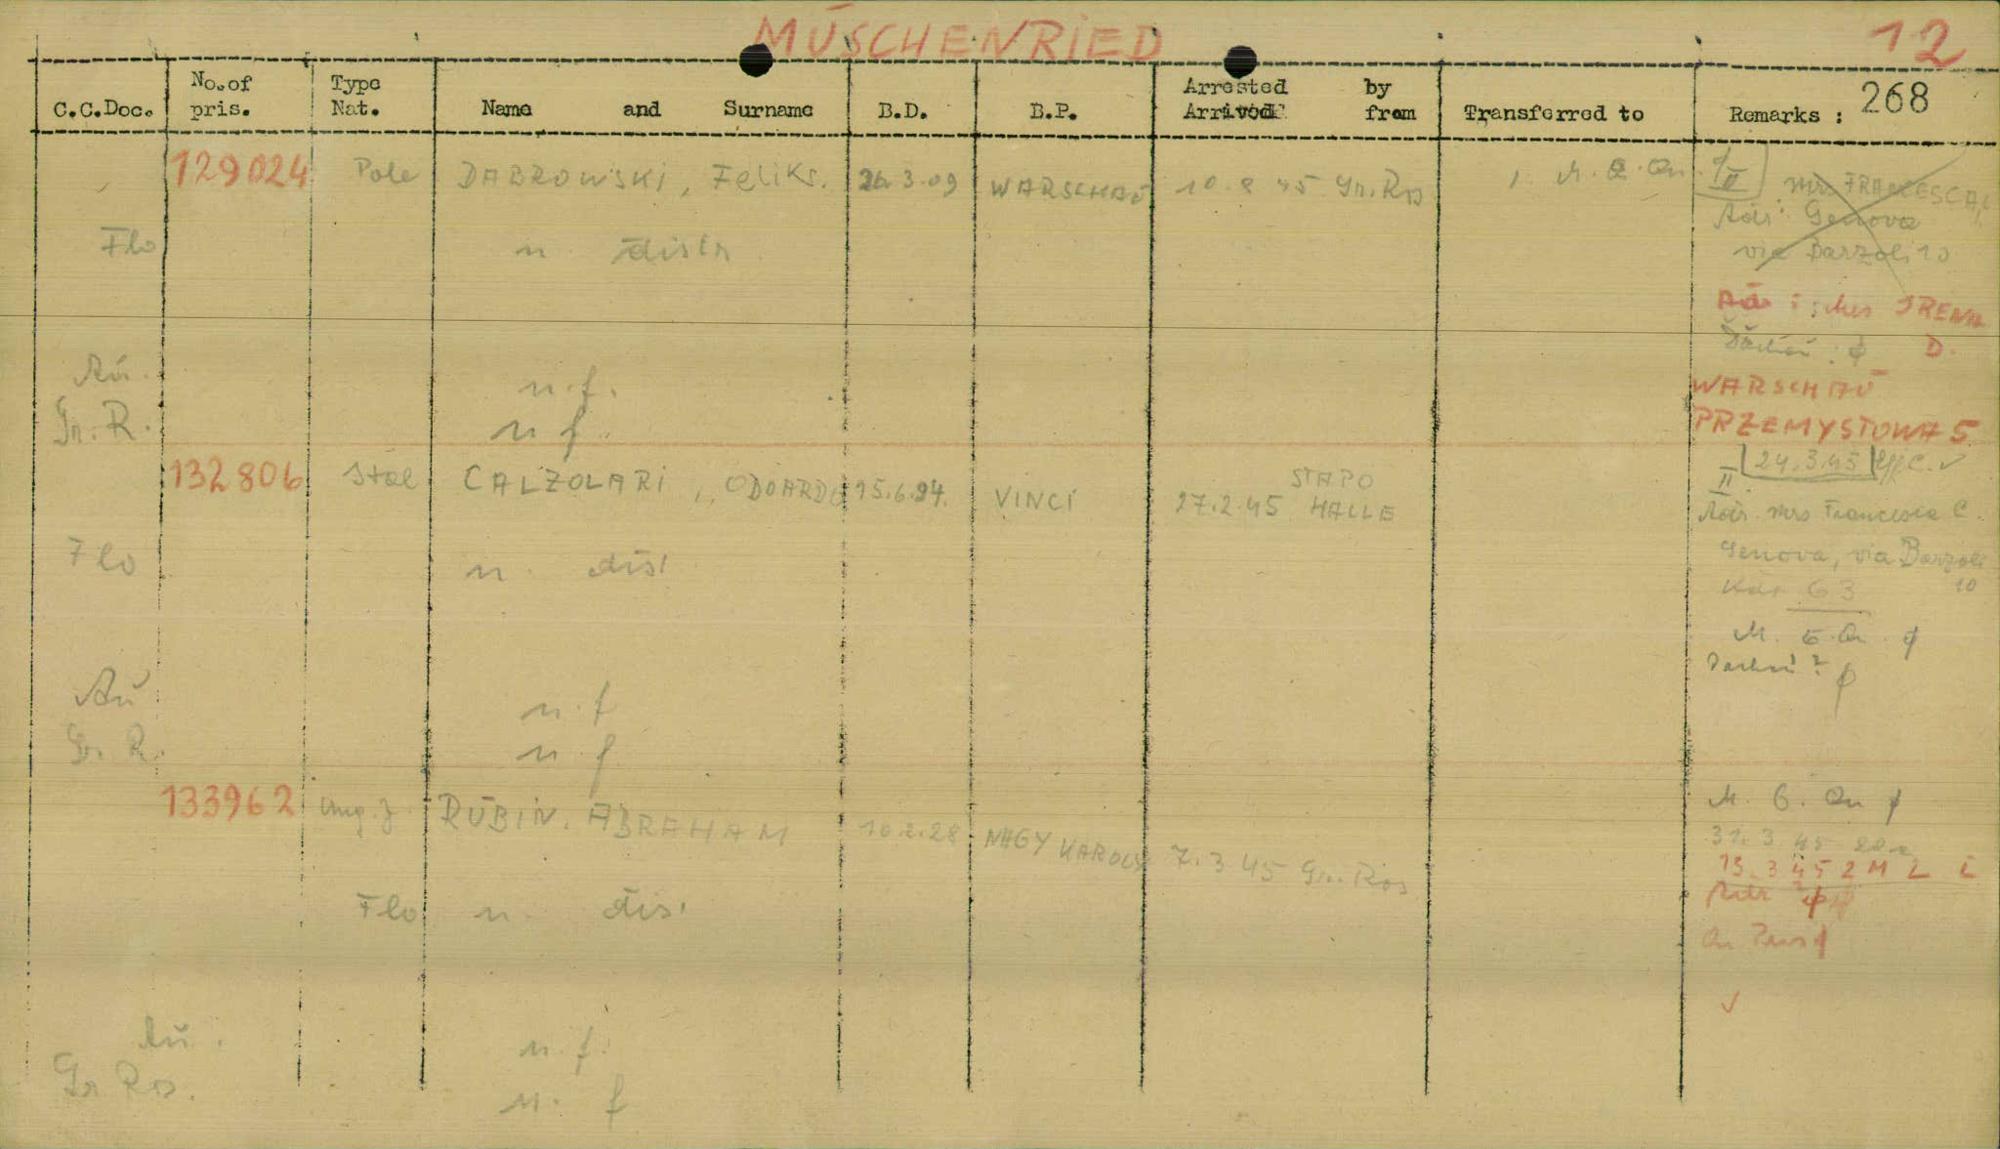 MÜSCHENRIED 12
C.C.Doc. No. of pris. Type Nat. Name and Surname B.D. B.P. Arrested by Arrived from Transferred to Remarks : 268
129024 Pole DABROWSKI, Feliks. 26.3.09 WARSCHAU 10.2 45 Gr.Ros
Mrs FRANCESCA
Adr: Genova
Flo n. distr via Barzoli 10
Mrs IRENA
D.
Au. n.f. WARSCHAU
Gr. R. n f. PRZEMYSTOWA 5
24.3.45
132806 Ital CALZOLARI, ODOARDO 15.6.94. VINCI 27.2.45 STAPO HALLE
II
Adr. Mrs Francesca C.
Flo n. dis! Genova, via Barzoli
10
63
M. 5. Qu. ϕ
Dachau? ϕ
Au n.f
Gr. R. n f
133962 Ung. J. RUBIN. ABRAHAM 10.2.28 NAGY KAROLY 7.3 45 Gr. Ros
M. 6. Qu ϕ
31.3 45
13.3 45 2 M L L
Flo n. dis!
Au. n.f.
Gr Ros. n. f